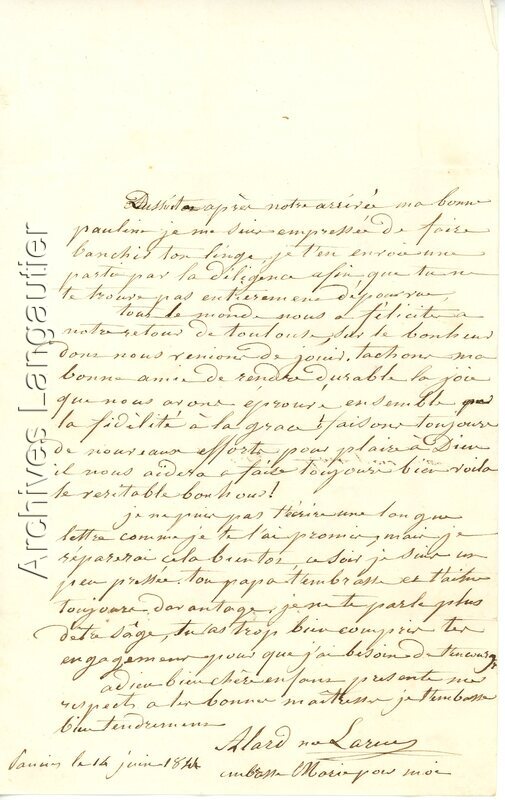 Aussitot après notre arrivée ma bonne
pauline je me suis empressée de faire
blanchir ton linge, je t'en envoie une
partie par la diligence afin que tu ne
te trouve pas entierement dépourvue,
tout le monde nous a félicité a
notre retour de toulouse, sur le bonheur
dont nous venions de jouir. tachons ma
bonne amie de rendre durable la joie
que nous avons eprouvé ensemble par
la fidélité à la grace ! faisons toujours
de nouveaux efforts pour plaire à Dieu
il nous aidera a faire toujours bien voila
le veritable bonheur !
je ne puis pas t'écrire une longue
lettre comme je te l'ai promis, mais je
réparerai cela bientot, ce soir je suis un
peu pressée. ton papa t'embrasse et t'aime
toujours davantage, je ne te parle plus
d'être sâge, tu as trop bien compris tes
engagemens pour que j'ai besoin de t'encourager
adieu bien chère enfant presente mes
respects a tes bonnes maitresses je t'embrasse
bien tendrement
Alard née Larue
Pamiers le 14 juin 1844
embrasse Marie pour moi
Archives Langautier